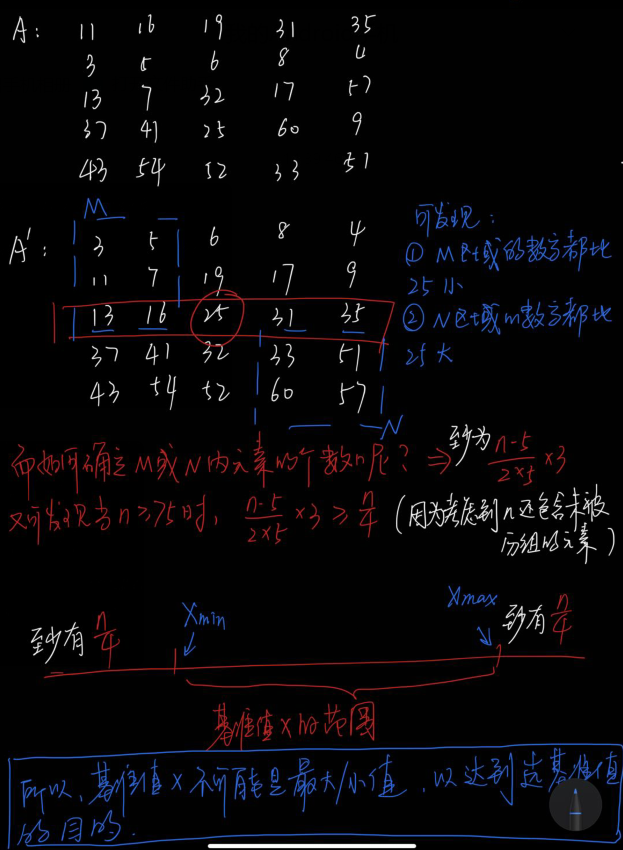 A: 11 16 19 31 35
3 5 6 8 4
13 7 32 17 57
37 41 25 60 9
43 54 52 33 51
M
A': 3 5 6 8 4
11 7 19 17 9
13 16 25 31 35
37 41 32 33 51
43 54 52 60 57
N
可发现:
① M区域的数字都比
25小
② N区域的数字都比
25大
而如何确定M或N内元素的个数呢? ⇒ 至少为 (n-5)/(2×5) ×3
又可发现当n≥75时, (n-5)/(2×5) ×3 ≥ n/4 (因为考虑到n还包含未被
分组的元素)
至少有 n/4 Xmin Xmax 至少有 n/4
基准值X的范围
所以, 基准值X不可能是最大/小值, 以达到选基准值
的目的.